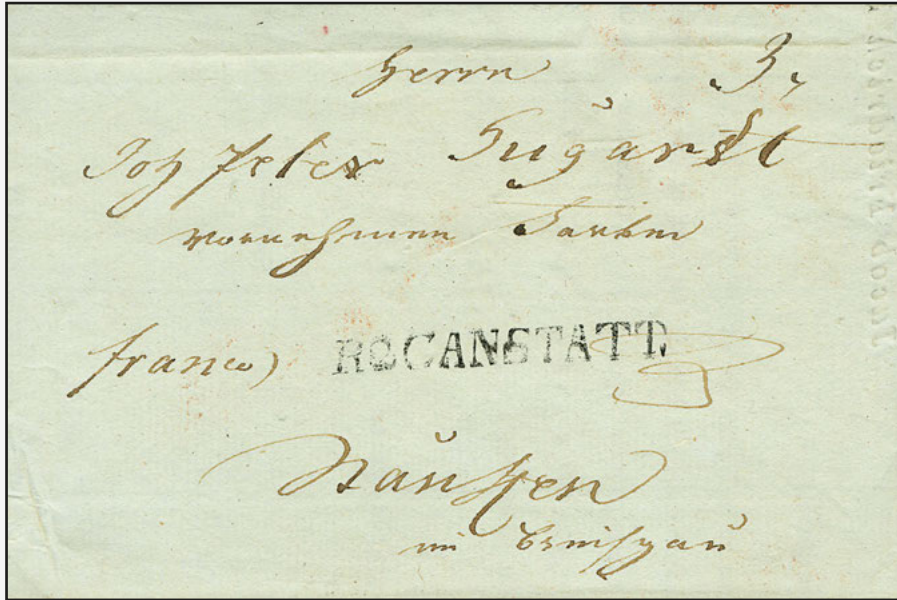 Herrn
Joh Peter Hugardt
vornehmen
franco R.CANSTATT.
Stauffen
im Breisgau